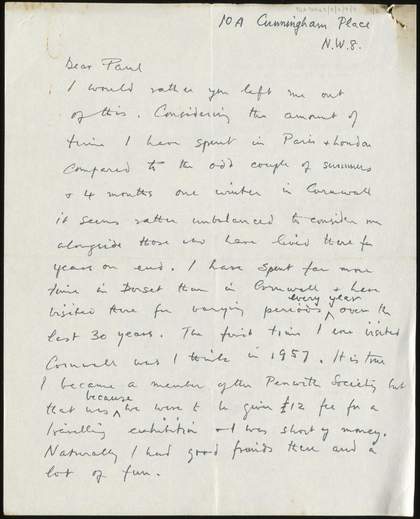 10A Cunningham Place
N.W.8.
Dear Paul
I would rather you left me out
of this. Considering the amount of
time I have spent in Paris + London
compared to the odd couple of summers
+ 4 months one winter in Cornwall
it seems rather unbalanced to consider me
alongside those who have lived there for
years on end. I have spent far more
time in Dorset than in Cornwall + have
every year
visited there for varying periods over the
last 30 years. The first time I ever visited
Cornwall was I think in 1957. It is true
I became a member of the Penwith Society but
because
that was we were to be given £12 fee for a
travelling exhibition + I was short of money.
Naturally I had good friends there and a
lot of fun.